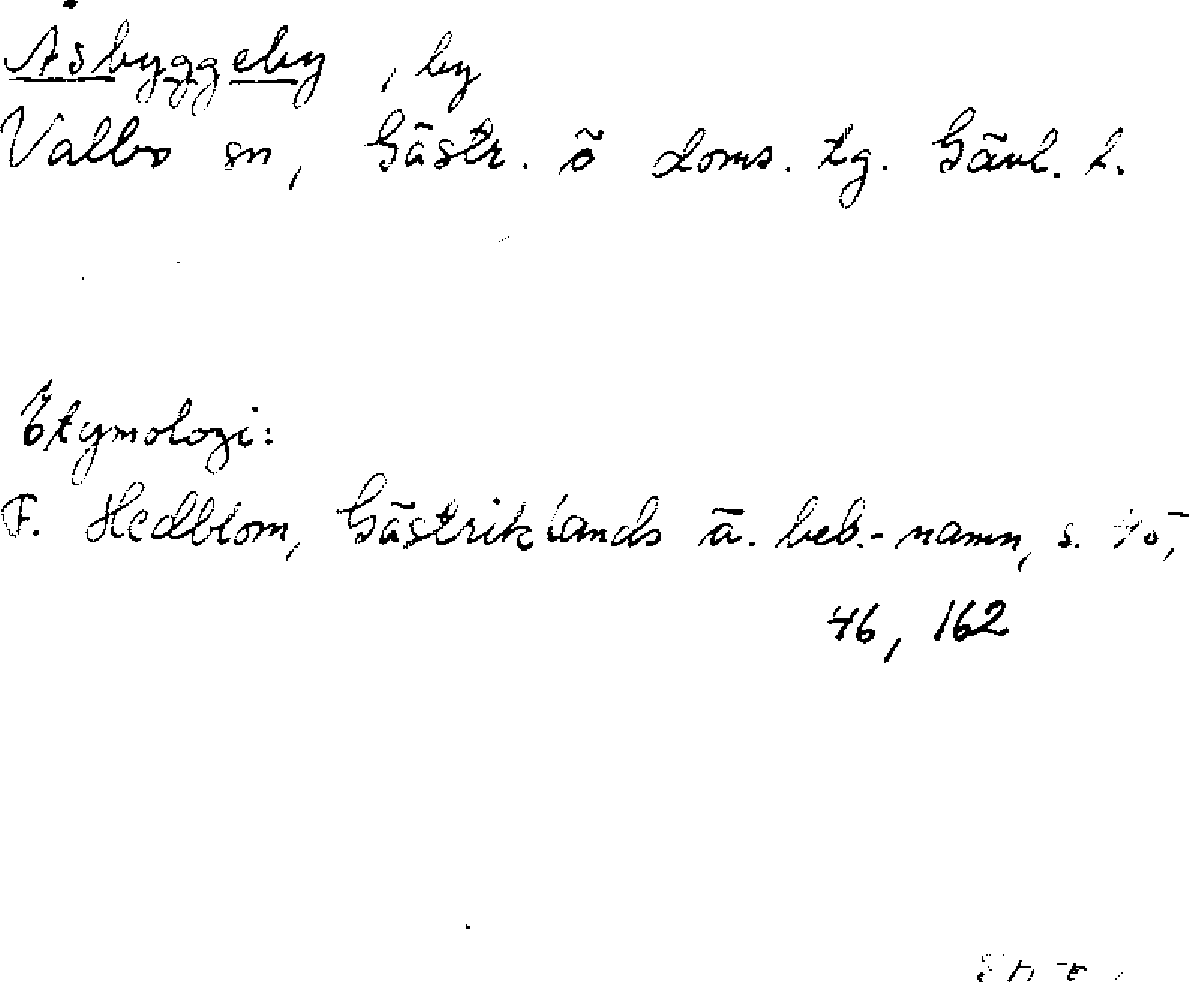 Åsbyggeby, by
Valbo sn, Gästr. ö doms. tg. Gävl. l.
Etymologi:
F. Hedblom, Gästriklands ä. beb.-namn, s.
46, 162